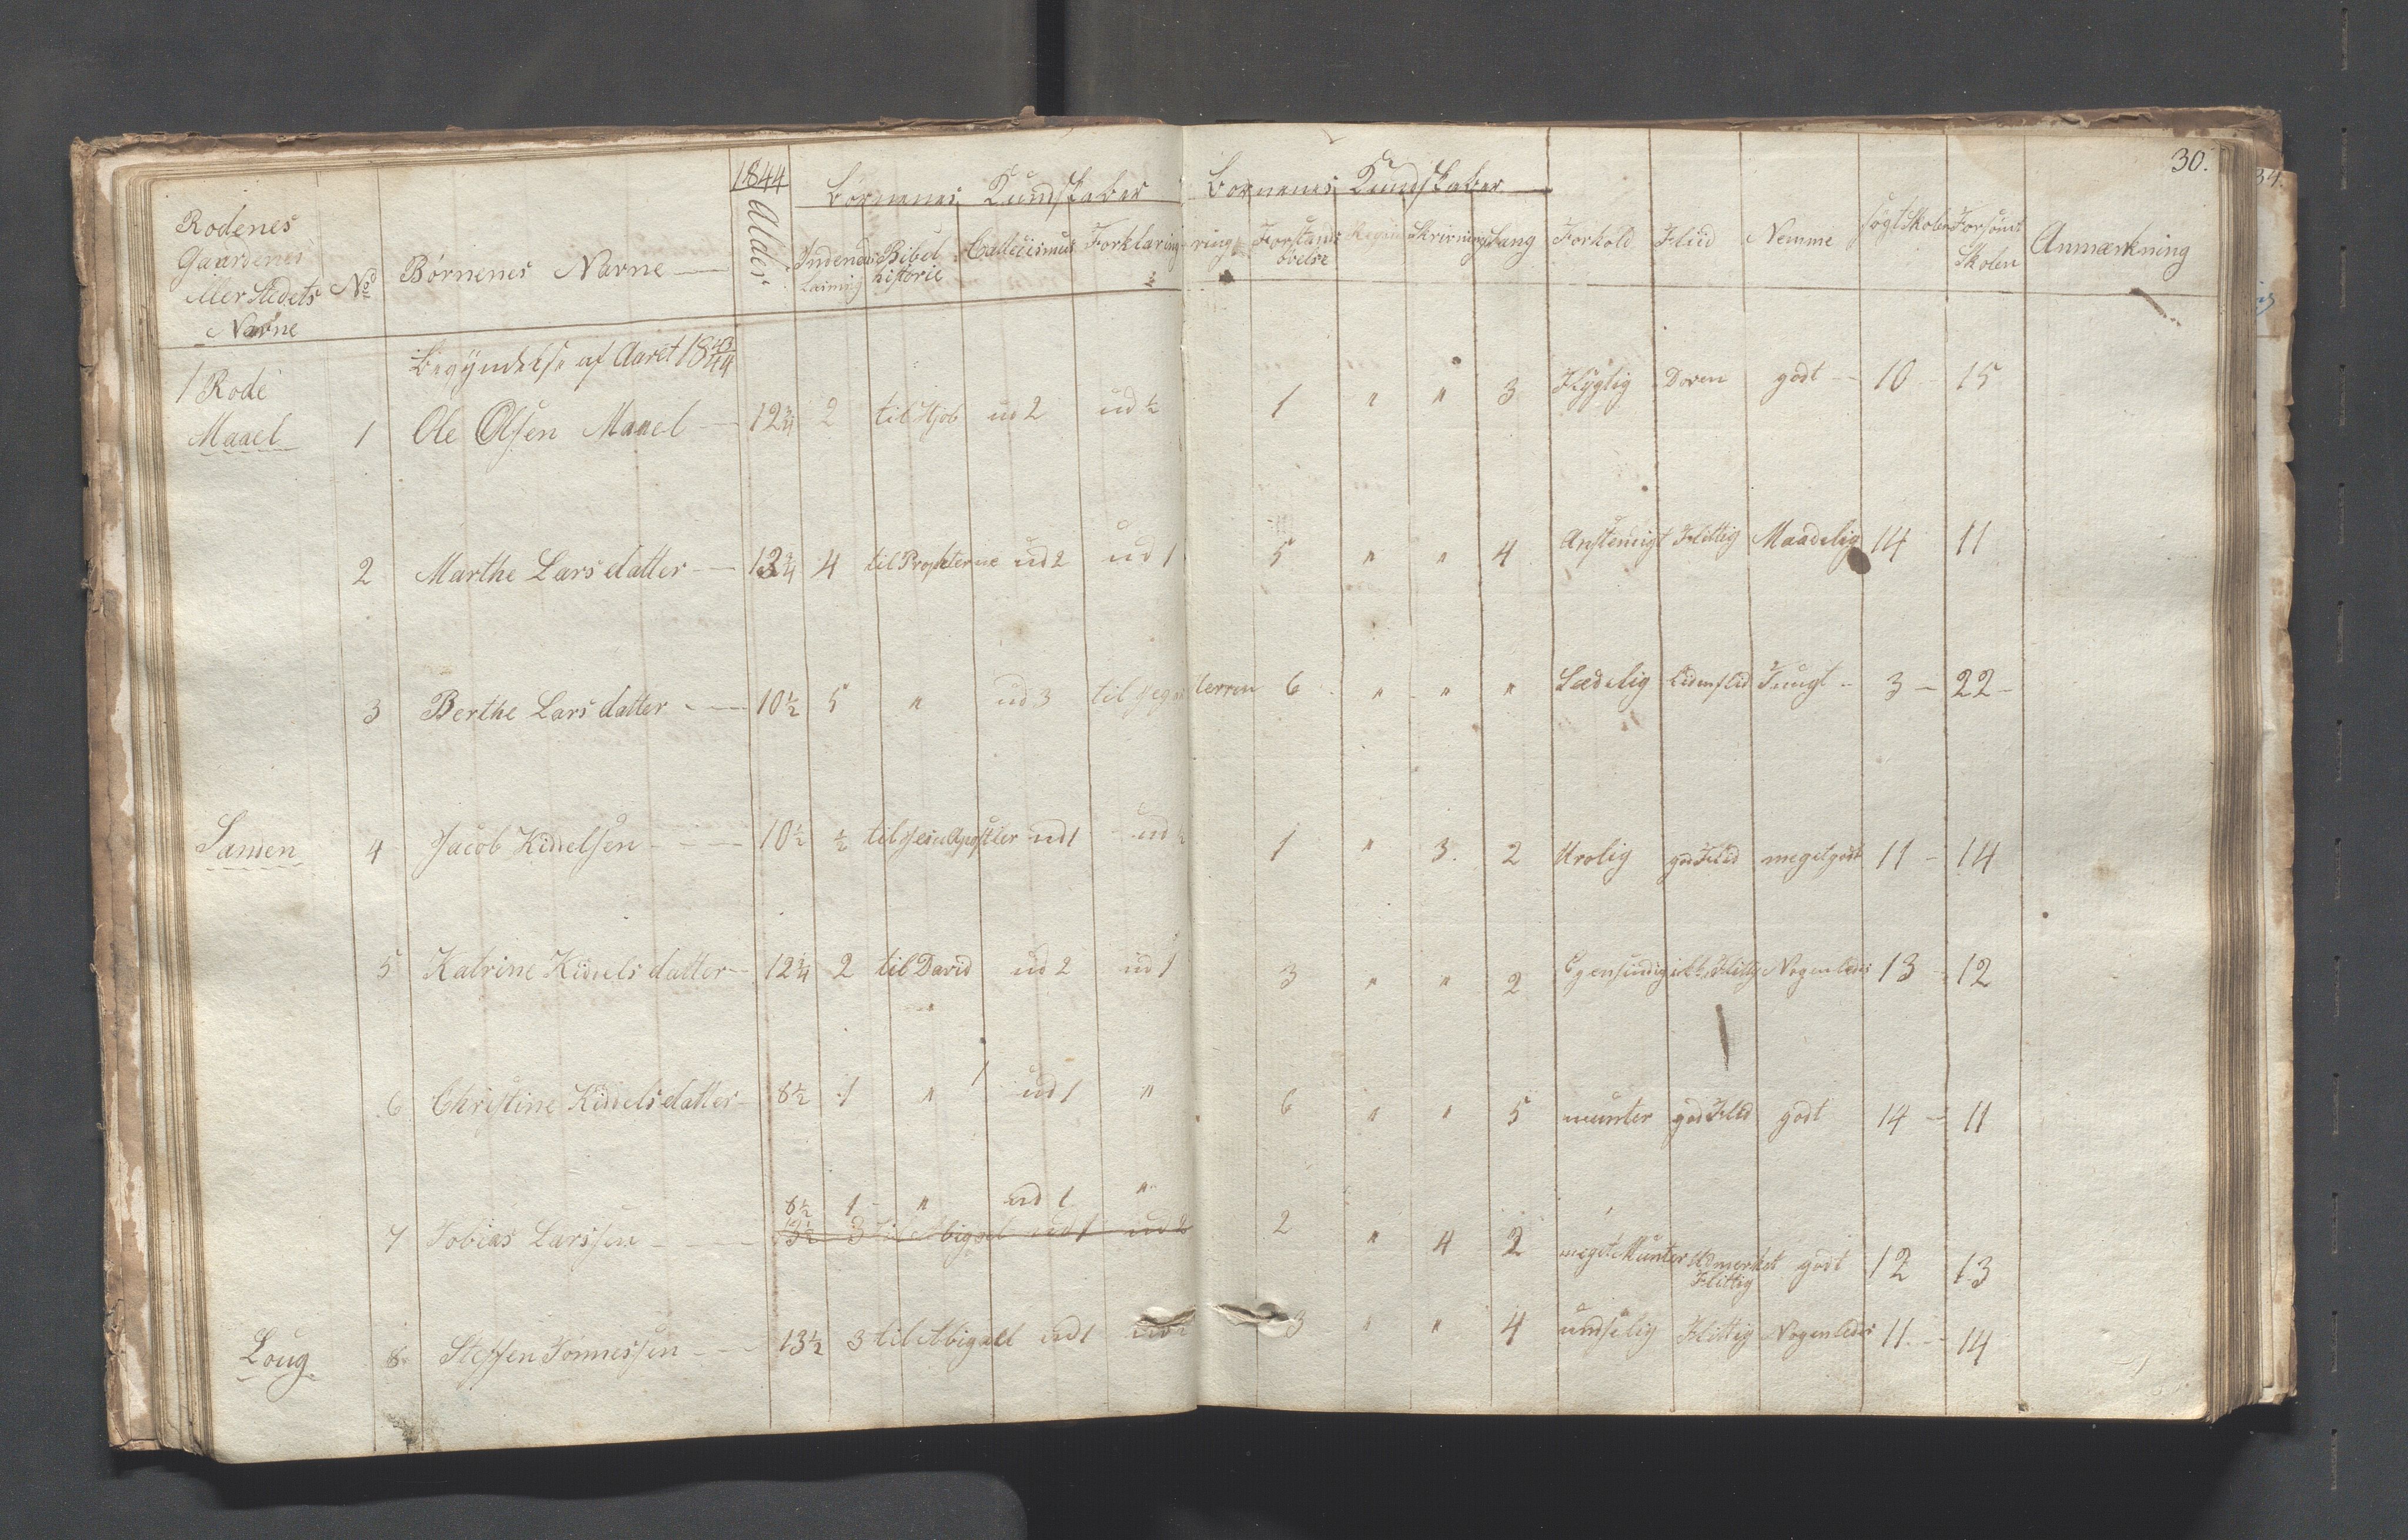 30.
1844
Børnenes Kundskaber Børnenes Kundskaber
Rodenes
Gaardenes
eller Stedets
Navne
No Børnenes Navne Alder Indenad Læsning Bibel historie Catteciismus Forklaring ring Forstands øvelse Regning Skrivning Sang Forhold Fliid Nemme søgt Skolen Forsømt Skolen Anmærkning
Begyndelse af Aaret 1843/44
1 Rode
Maael 1 Ole Olsen Maael 12 3/4 2 til Hjob ud 2 ud ½ 1 " " 3 Flygtig Doven godt 10 - 15
2 Marthe Larsdatter 13 3/4 4 til Propheterne ud 2 ud 1 5 " " 4 Anstendigt Flittig Maadelig 14 11
3 Berthe Larsdatter 10½ 5 " ud 3 6 " " " Sædelig liden flid Tungt 3 - 22
Sanden 4 Jacob Kiddelsen 10½ ½ til Jesu Apostler ud 1 ud ½ 1 " 3. 2 Urolig god Flid meget godt 11 - 14
5 Katrine Kiddelsdatter 12 3/4 2 til David ud 2 ud 1 3 " " 2 Egensindig ikke Flittig Nogenledes 13 - 12
6 Christine Kiddelsdatter 8½ 1 " ud 1 " 6 " " 5 munter god Flid godt 14 - 11
8½ 1 " ud 1 "
7 Tobias Larssen 13½ 3 til Abigael ud 1 ud 2 2 " 4 2 meget Munter Udmerket Flittig godt 12 13
Loug 8 Steffen Tønnessen 13½ 3 til Abigael ud 1 3 " " 4 undselig Flittig Nogenledes 11 - 14